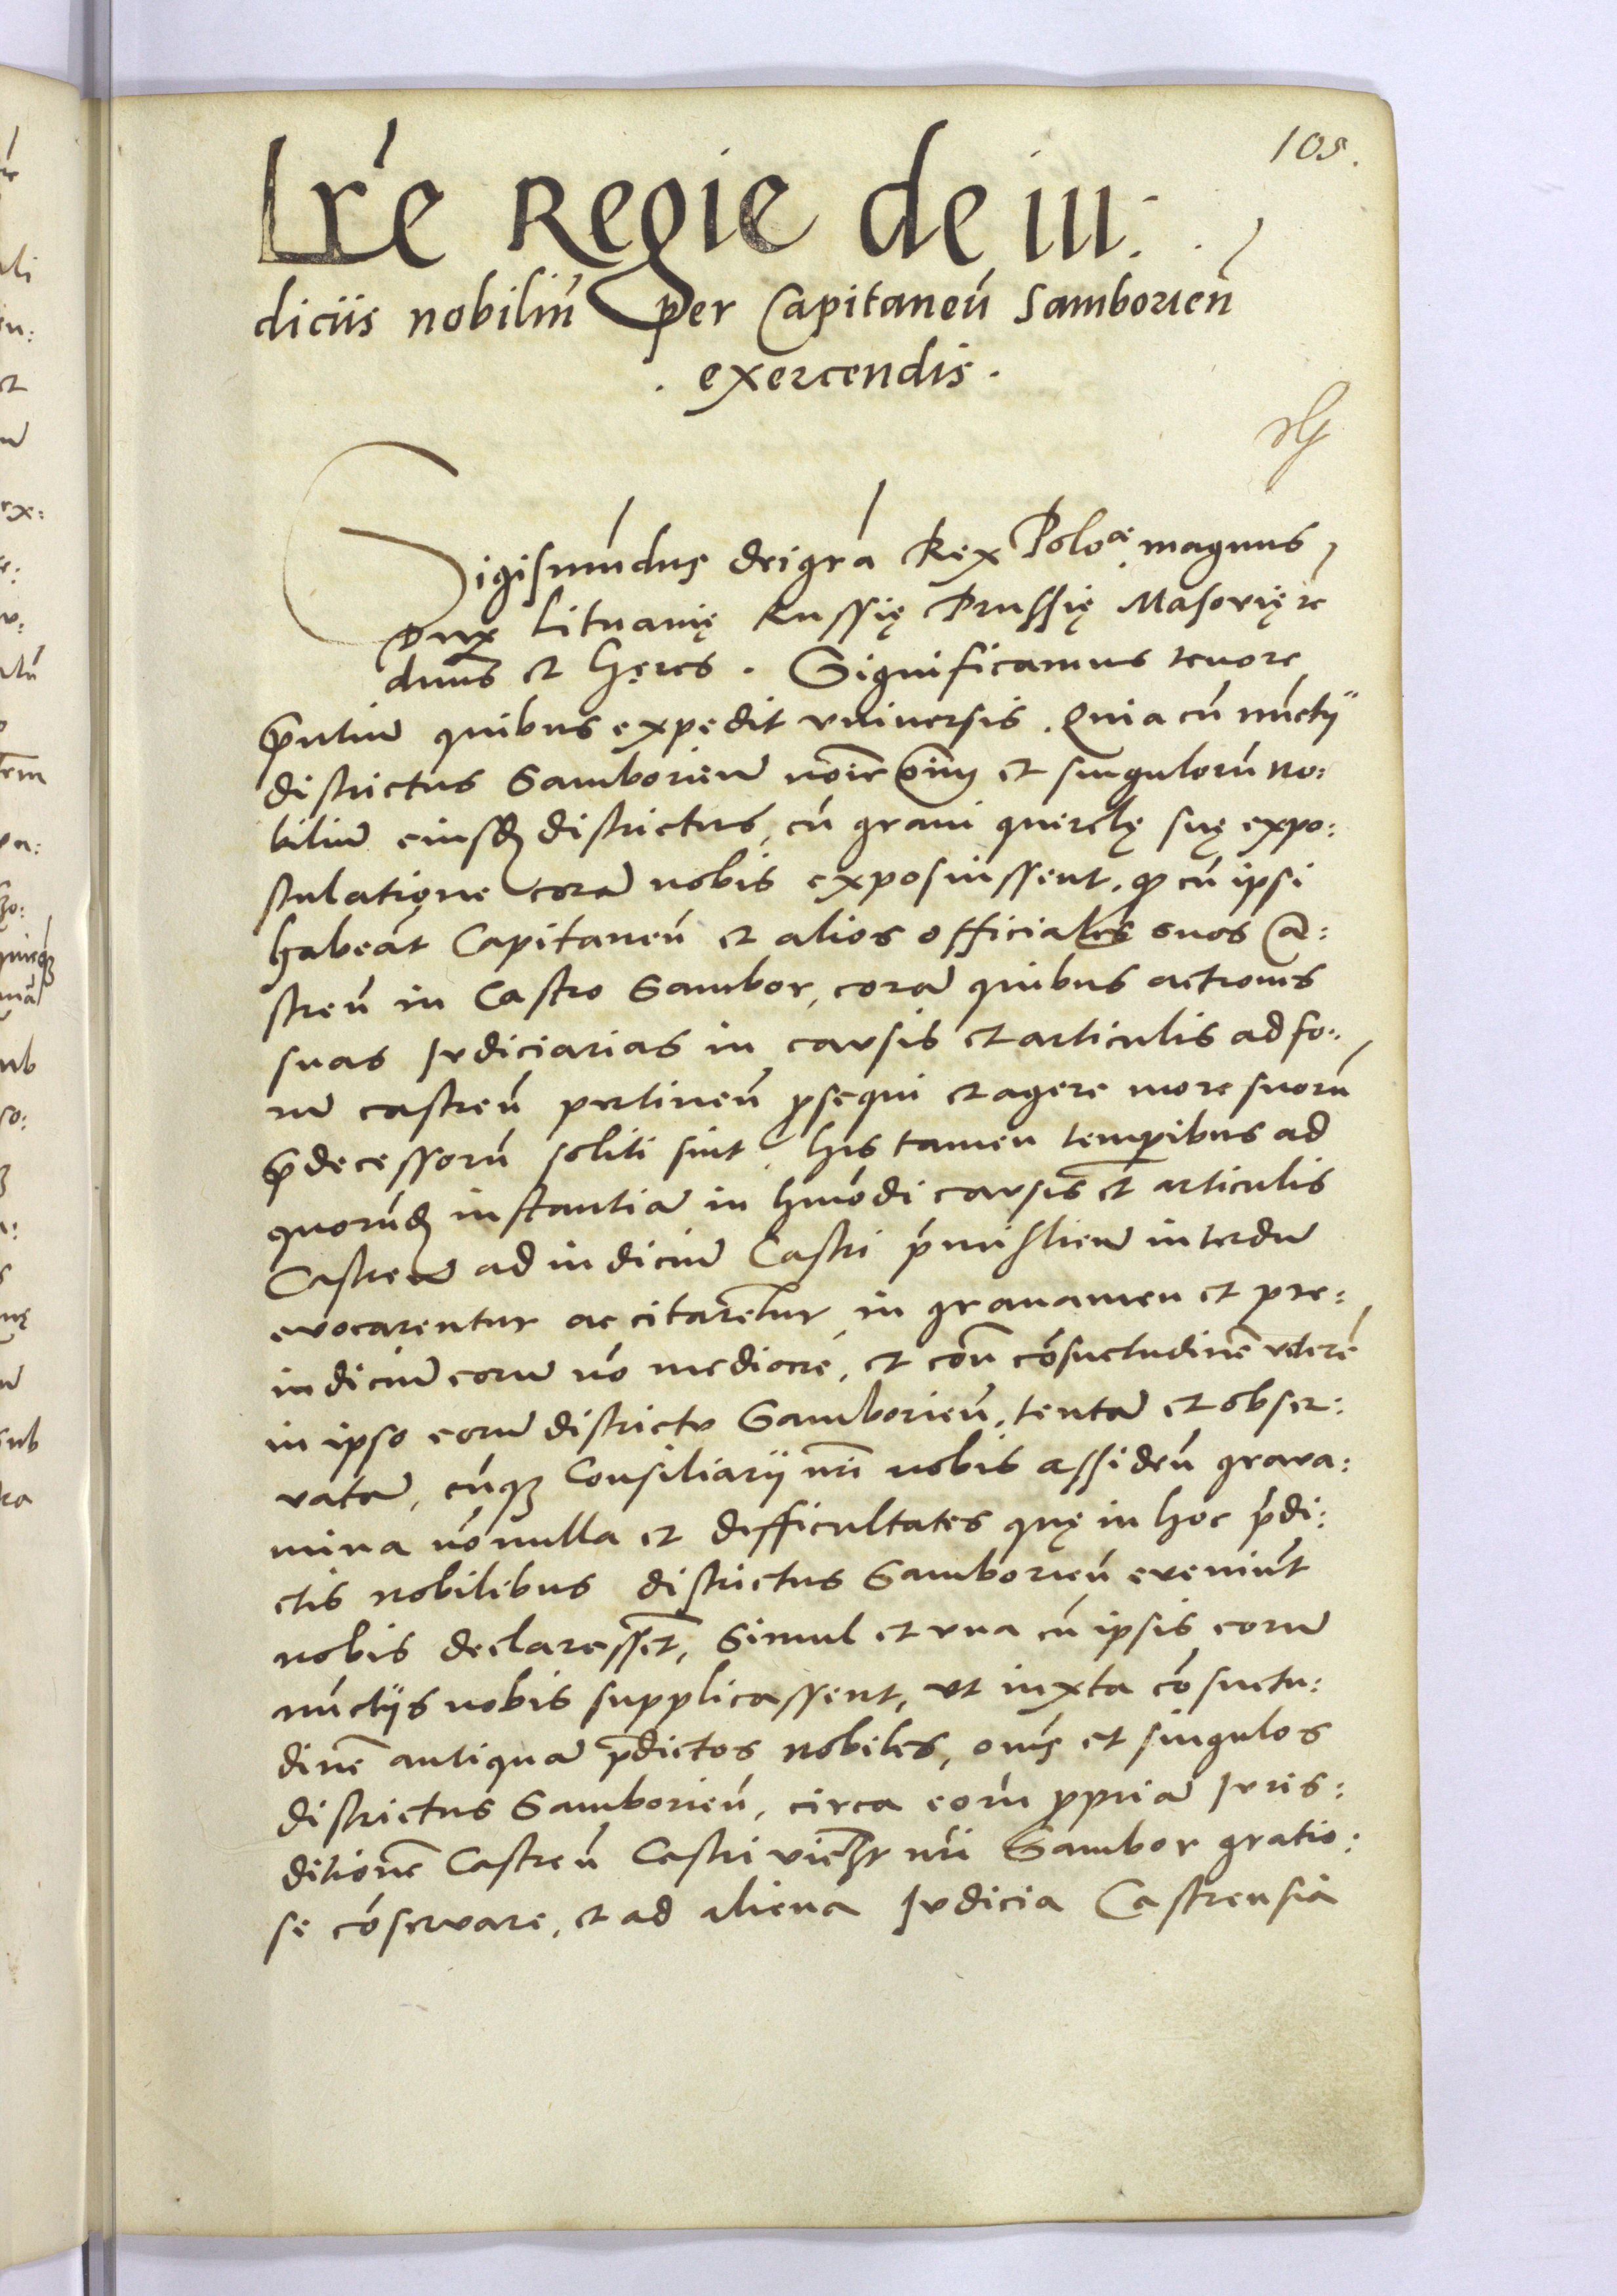 105.
Lr̃e Regie de iu:
diciis nobiliũ per Capitaneũ Samborieñ
. exercendis .
Sigismũdus dei gr̃a Rex Poloᵉ, magnus
Dux Lituanię Russię Prussię Masovię ꝛc
dnus et hęres . Significamus tenore
p̃ntium quibus expedit vniversis . Quia cũ nũctij
districtus Samborieñ noĩe oĩm et singulorũ no:
bilium eiusdẽ districtus, cũ gravi querelę suę expo:
stulatione corã nobis exposuissent, ꝙ cũ ipsi
habeãt Capitaneũ et alios officiales suos Ca:
streñ in Castro Sambor, corã quibus actiones
suas Judiciarias in causis et articulis ad fo:
rũ castreñ pertineñ ꝓsequi et agere more suorũ
p̃decessorũ soliti sint, his tamen temporibus ad
quorũdẽ instantiã in hmõdi causis et articulis
Castreñ ad iudicium Castri p̃mislieñ interdũ
evocarentur ac citarẽtur, in gravamen et pre:
iudicium eorum nõ mediocrẽ, et coñ cõsuetudinẽ veterẽ
in ipso eorum districtu Samborieñ, tentã et obser:
vatã, cũq3 Consiliarij nr̃i nobis assideñ grava:
mina nõnulla et difficultates quę in hoc p̃di:
ctis nobilibus districtus Samborieñ eveniũt
nobis declarassẽt, Simul et vna cũ ipsis eorum
nũctijs nobis supplicassent, vt iuxta cõsuetu:
dinẽ antiquã p̃dictos nobiles, om̃s et singulos
districtus Samborieñ, circa eorũ ꝓpriã Iuris:
ditionẽ Castreñ Castri nr̃i Sambor gratio:
se cõservare, et ad aliena Judicia Castrensia